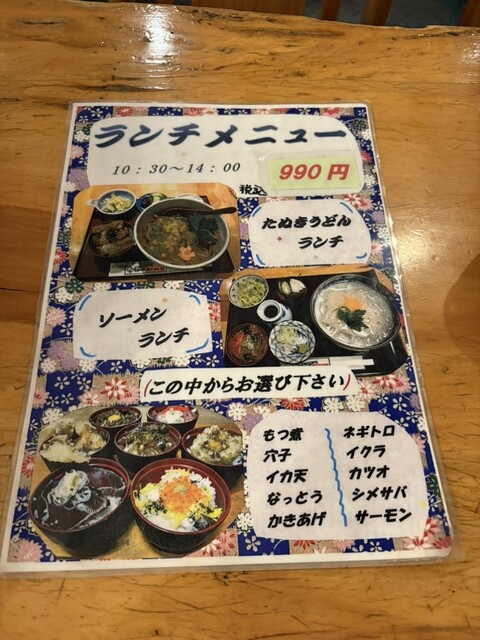 ランチメニュー
10：30～14：00
990円
税込
たぬきうどん
ランチ
ソーメン
ランチ
(この中からお選び下さい)
もつ煮
穴子
イカ天
なっとう
かきあげ
ネギトロ
イクラ
カツオ
シメサバ
サーモン